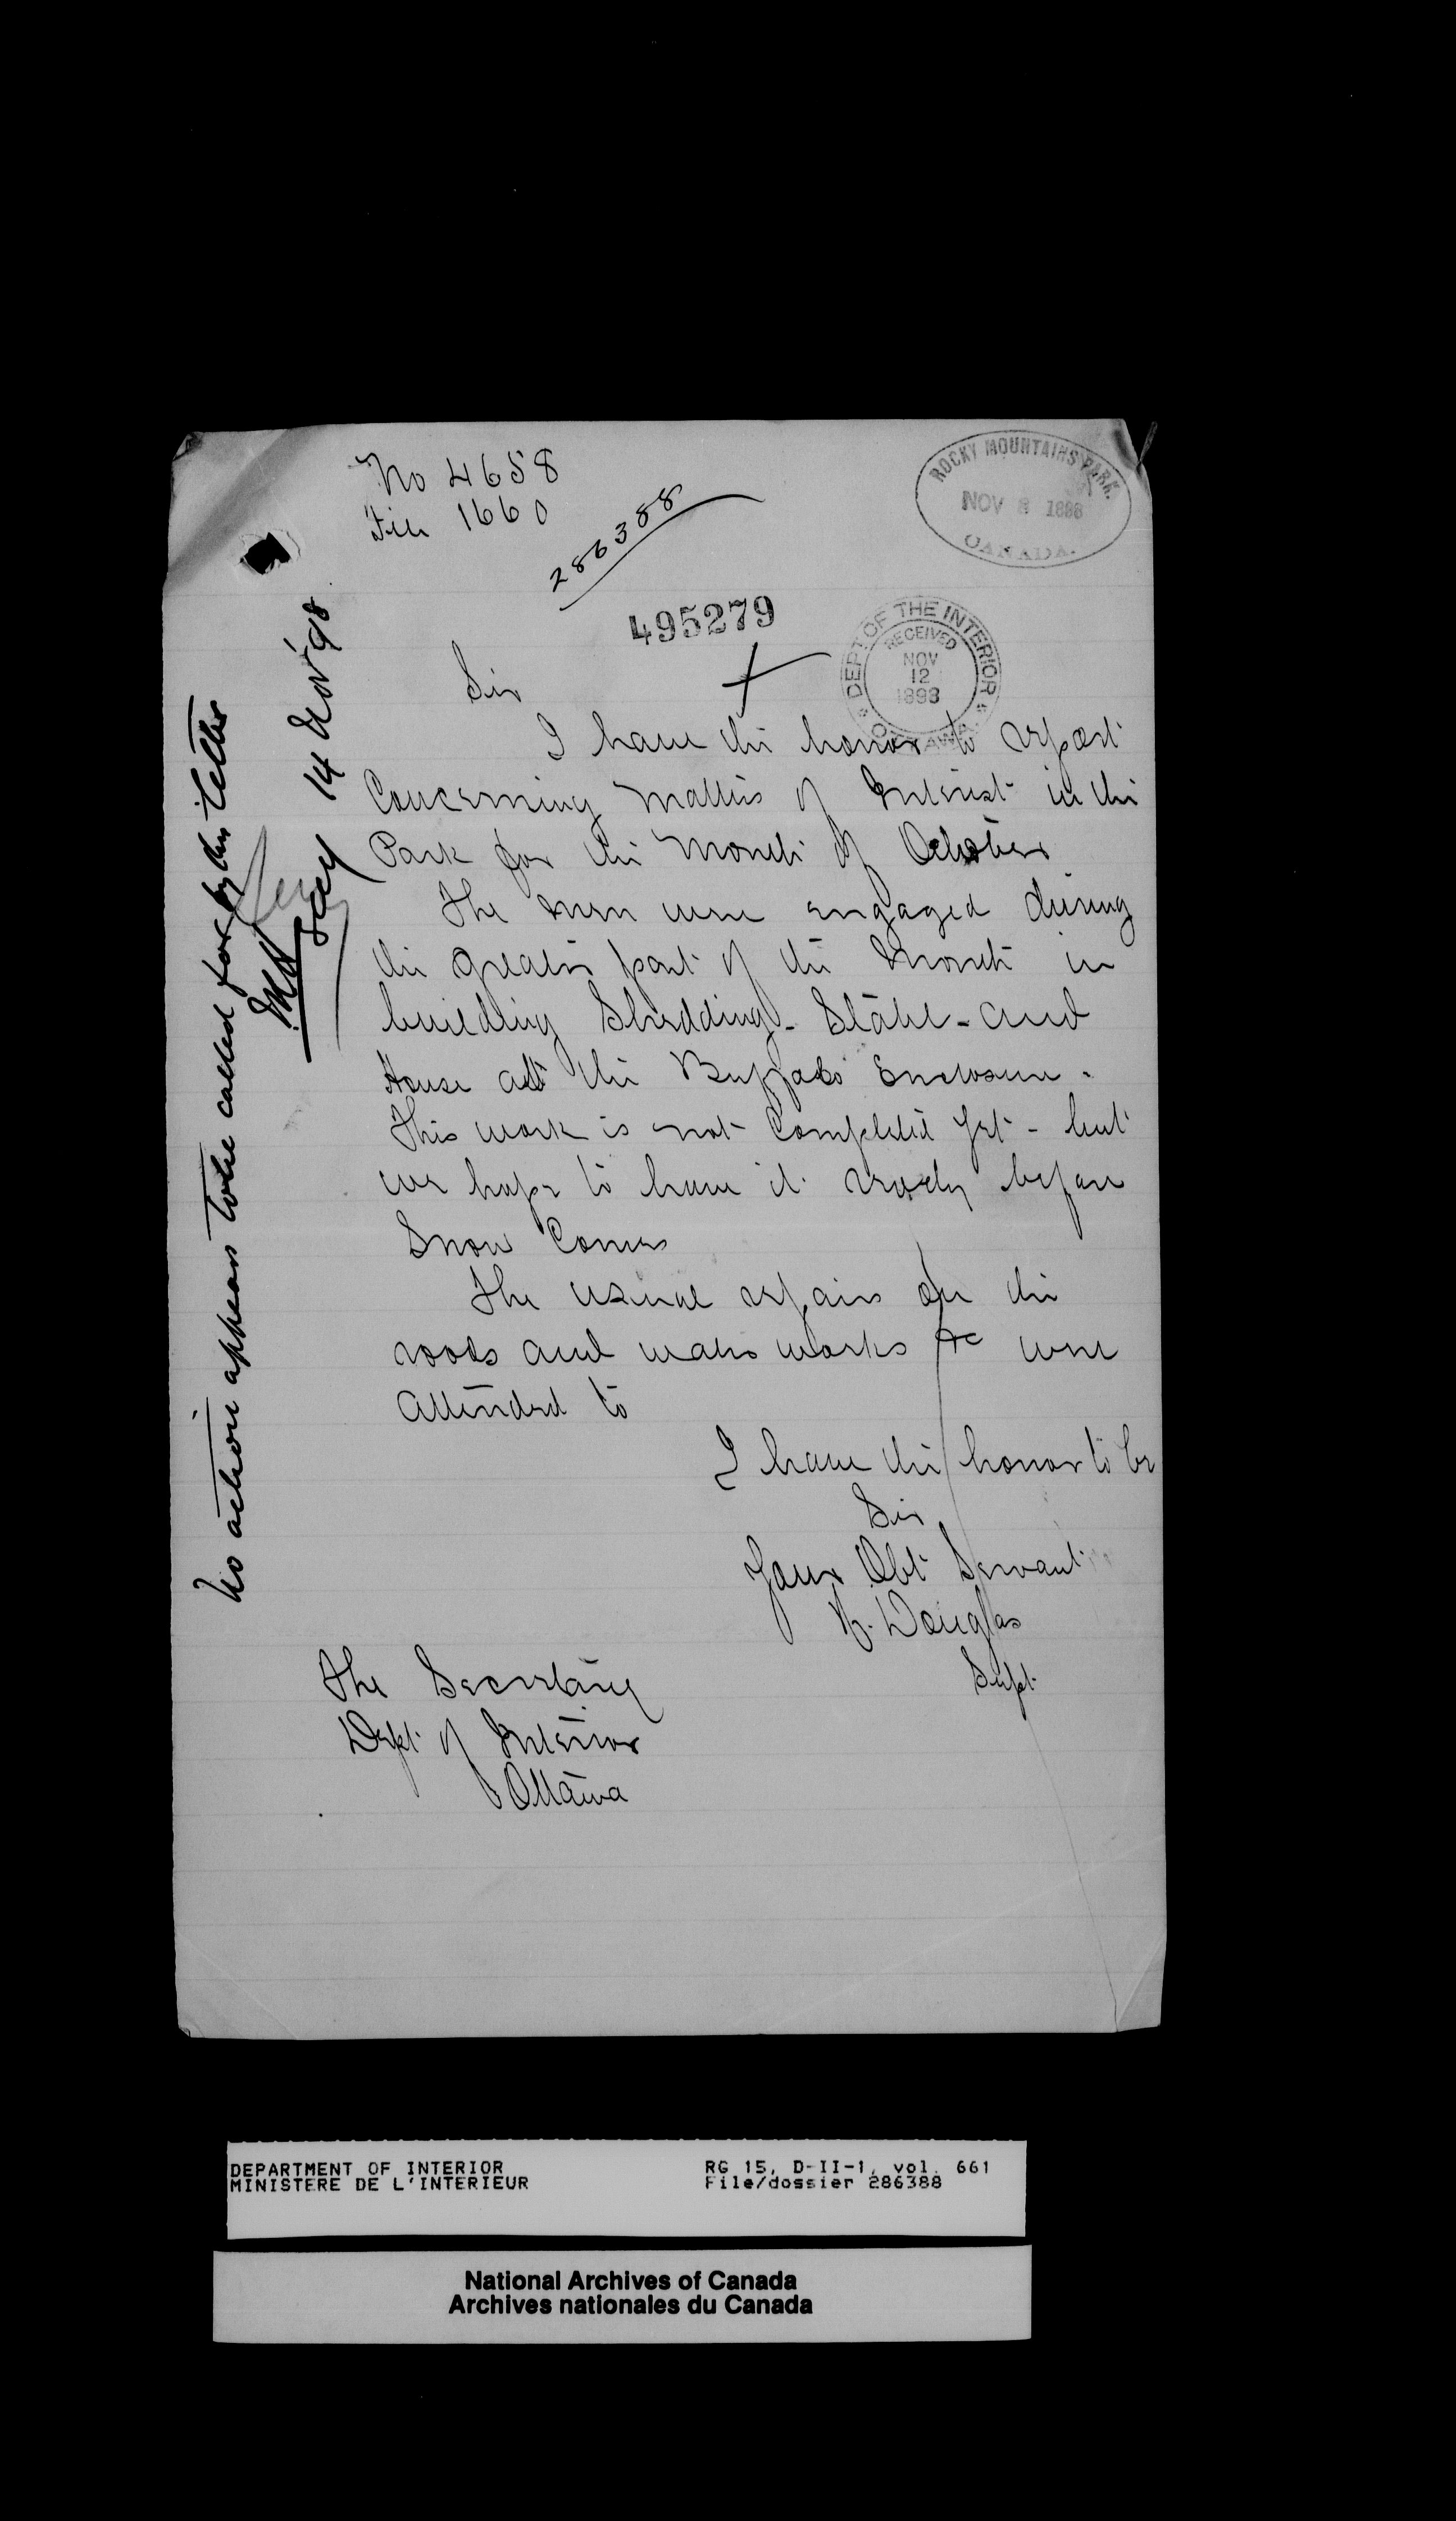 No 4658
File 1660
286388
ROCKY MOUNTAINS PARK.
NOV 8 1898
CANADA.
495279
DEPT OF THE INTERIOR
RECEIVED
NOV
12
1898
OTTAWA
Sir
I have the honor to report
Concerning matters of Interest in the
Park for the month of October
The men were engaged during
the greater part of the month in
building Shedding - Stable - and
House at the Buffalo Enclosure.
This work is not Completed yet - but
we hope to have it ready before
Snow Comes
The usual repairs on the
roads and water works &c were
attended to
I have the honor to be
Sir
Your Obt Servant
H. Douglas
Supt.
The Secretary
Dept. of Interior
Ottawa
No action appears to be called for by this letter
14 Nov '98
DEPARTMENT OF INTERIOR
MINISTERE DE L'INTERIEUR
RG 15, D-II-1, vol. 661
File/dossier 286388
National Archives of Canada
Archives nationales du Canada